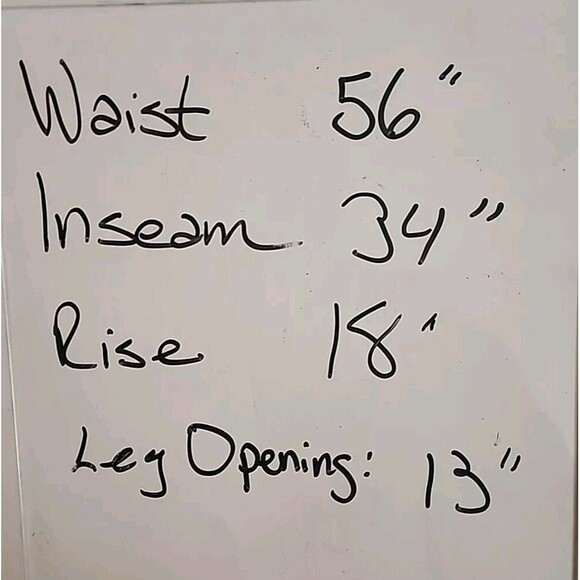 Waist 56"
Inseam 34"
Rise 18'
Leg Opening: 13"